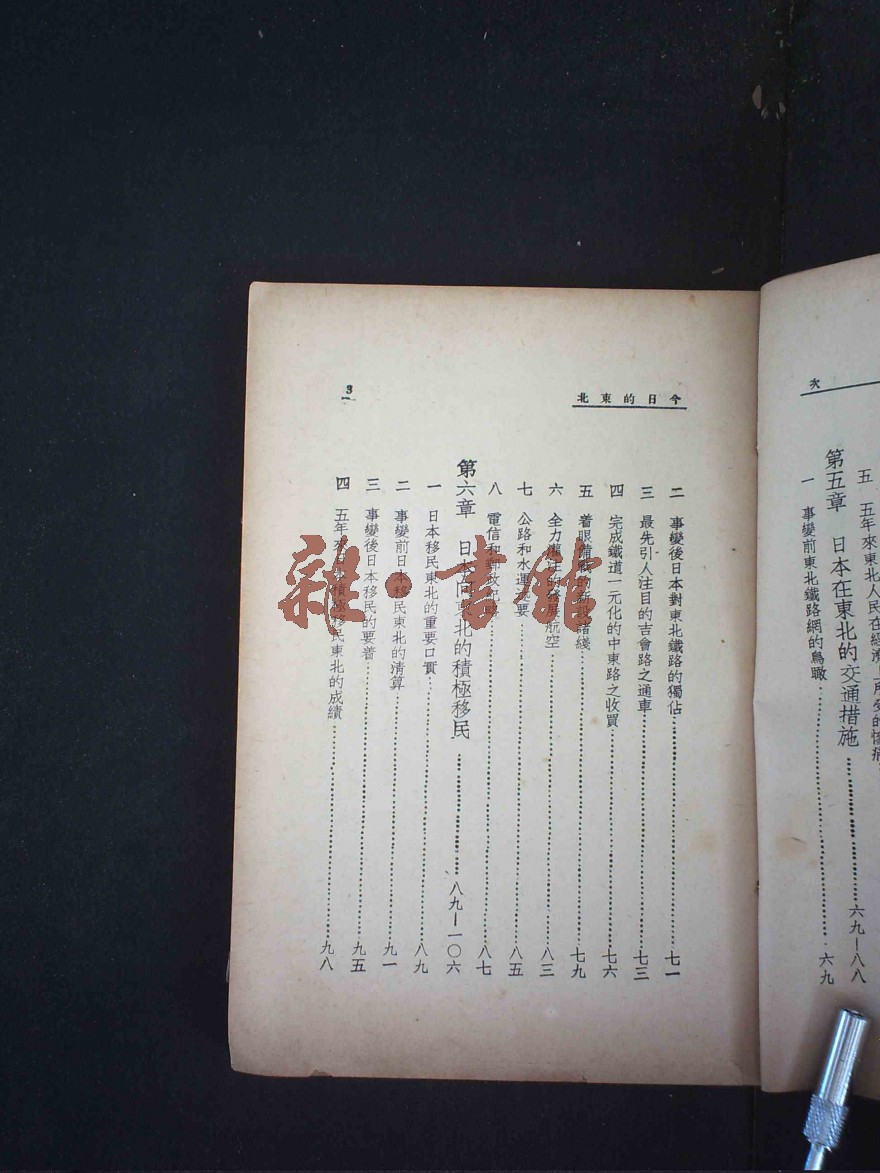 次
五　五年來東北人民在經濟上所受的慘痛
第五章　日本在東北的交通措施……六九—八八
一　事變前東北鐵路網的鳥瞰……六九
今日的東北
3
二　事變後日本對東北鐵路的獨佔……七一
三　最先引人注目的吉會路之通車……七三
四　完成鐵道一元化的中東路之收買……七六
五　着眼備戰的新設諸綫……七九
六　全力灌注的發展航空……八三
七　公路和水運概要……八五
八　電信和郵政……八七
第六章　日本向東北的積極移民……八九—一〇六
一　日本移民東北的重要口實……八九
二　事變前日本移民東北的清算……九一
三　事變後日本移民的要着……九五
四　五年來日本積極移民東北的成績……九八
雜·書館